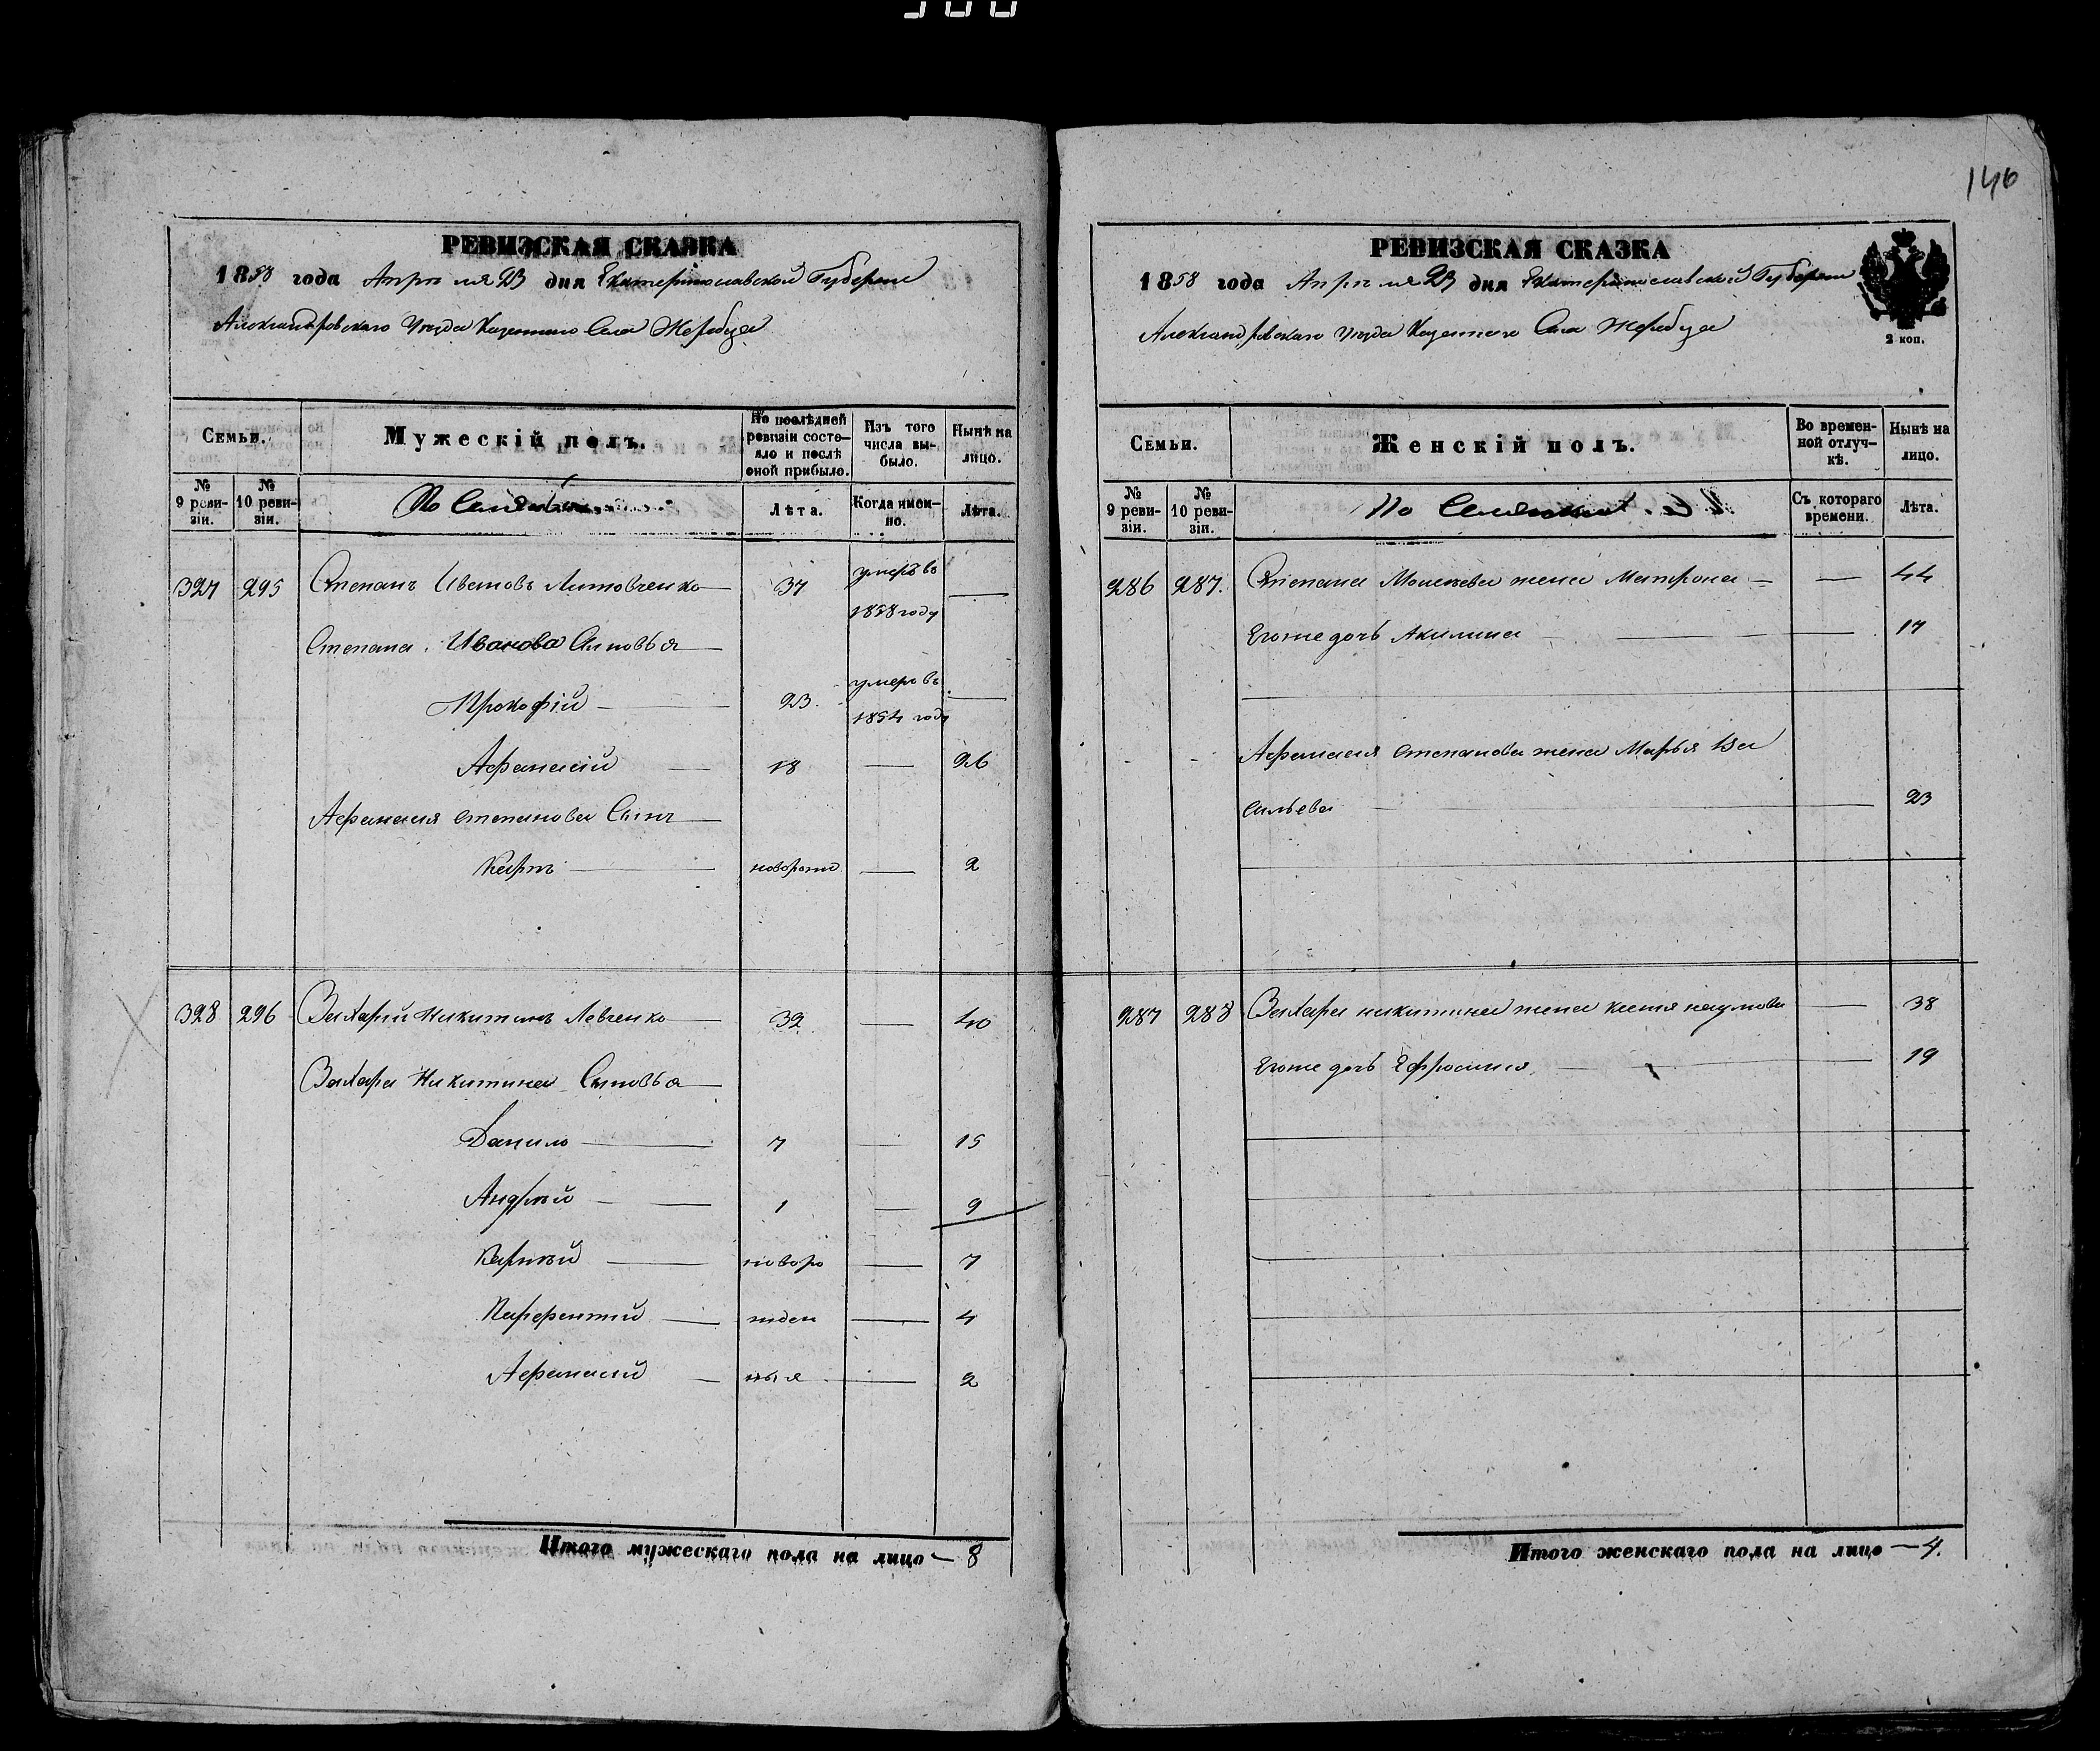 146
РЕВИЗСКАЯ СКАЗКА
1858 года Апреля 23 дня Екатеринославской Губернии
Александровскаго Уезда Казеннаго Села Жеребца
Семьи.
Мужескій полъ.
По послѣдней ревизіи состояло и послѣ оной прибыло.
Изъ того числа выбыло.
Нынѣ на лицо.
№ 9 ревизіи.
№ 10 ревизіи.
Лѣта.
Когда именно.
Лѣта.
327 295 Степанъ Ивановъ Литовченко 37 умеръ въ 1858 году
Степана Иванова Сыновья
Прокофій 23 умеръ въ 1854 году
Афанасій 18 26
Афанасія Степанова Сынъ
Карпъ новорожд 2
328 296 Захарій Никитинъ Левченко 32 40
Захара Никитина Сыновья
Данило 7 15
Андрѣй 1 9
новоро 7
Парфентій жден 4
Афанасій ныя 2
Итого мужескаго пола на лицо — 8
РЕВИЗСКАЯ СКАЗКА
1858 года Апреля 23 дня Екатеринославской Губернии
Александровскаго Уезда Казеннаго Села Жеребца
2 коп.
Семьи.
Женскій полъ.
Во временной отлучкѣ.
Нынѣ на лицо.
№ 9 ревизіи.
№ 10 ревизіи.
Съ котораго времени.
Лѣта.
286 287. Степана жена Матрона 44
Егоже дочь Акилина 17
Афанасія Степанова жена Марья Ва
сильева 23
287 288 Захара Никитина жена Ксенія Наумова 38
Егоже дочь Ефросинія 19
Итого женскаго пола на лицо — 4.